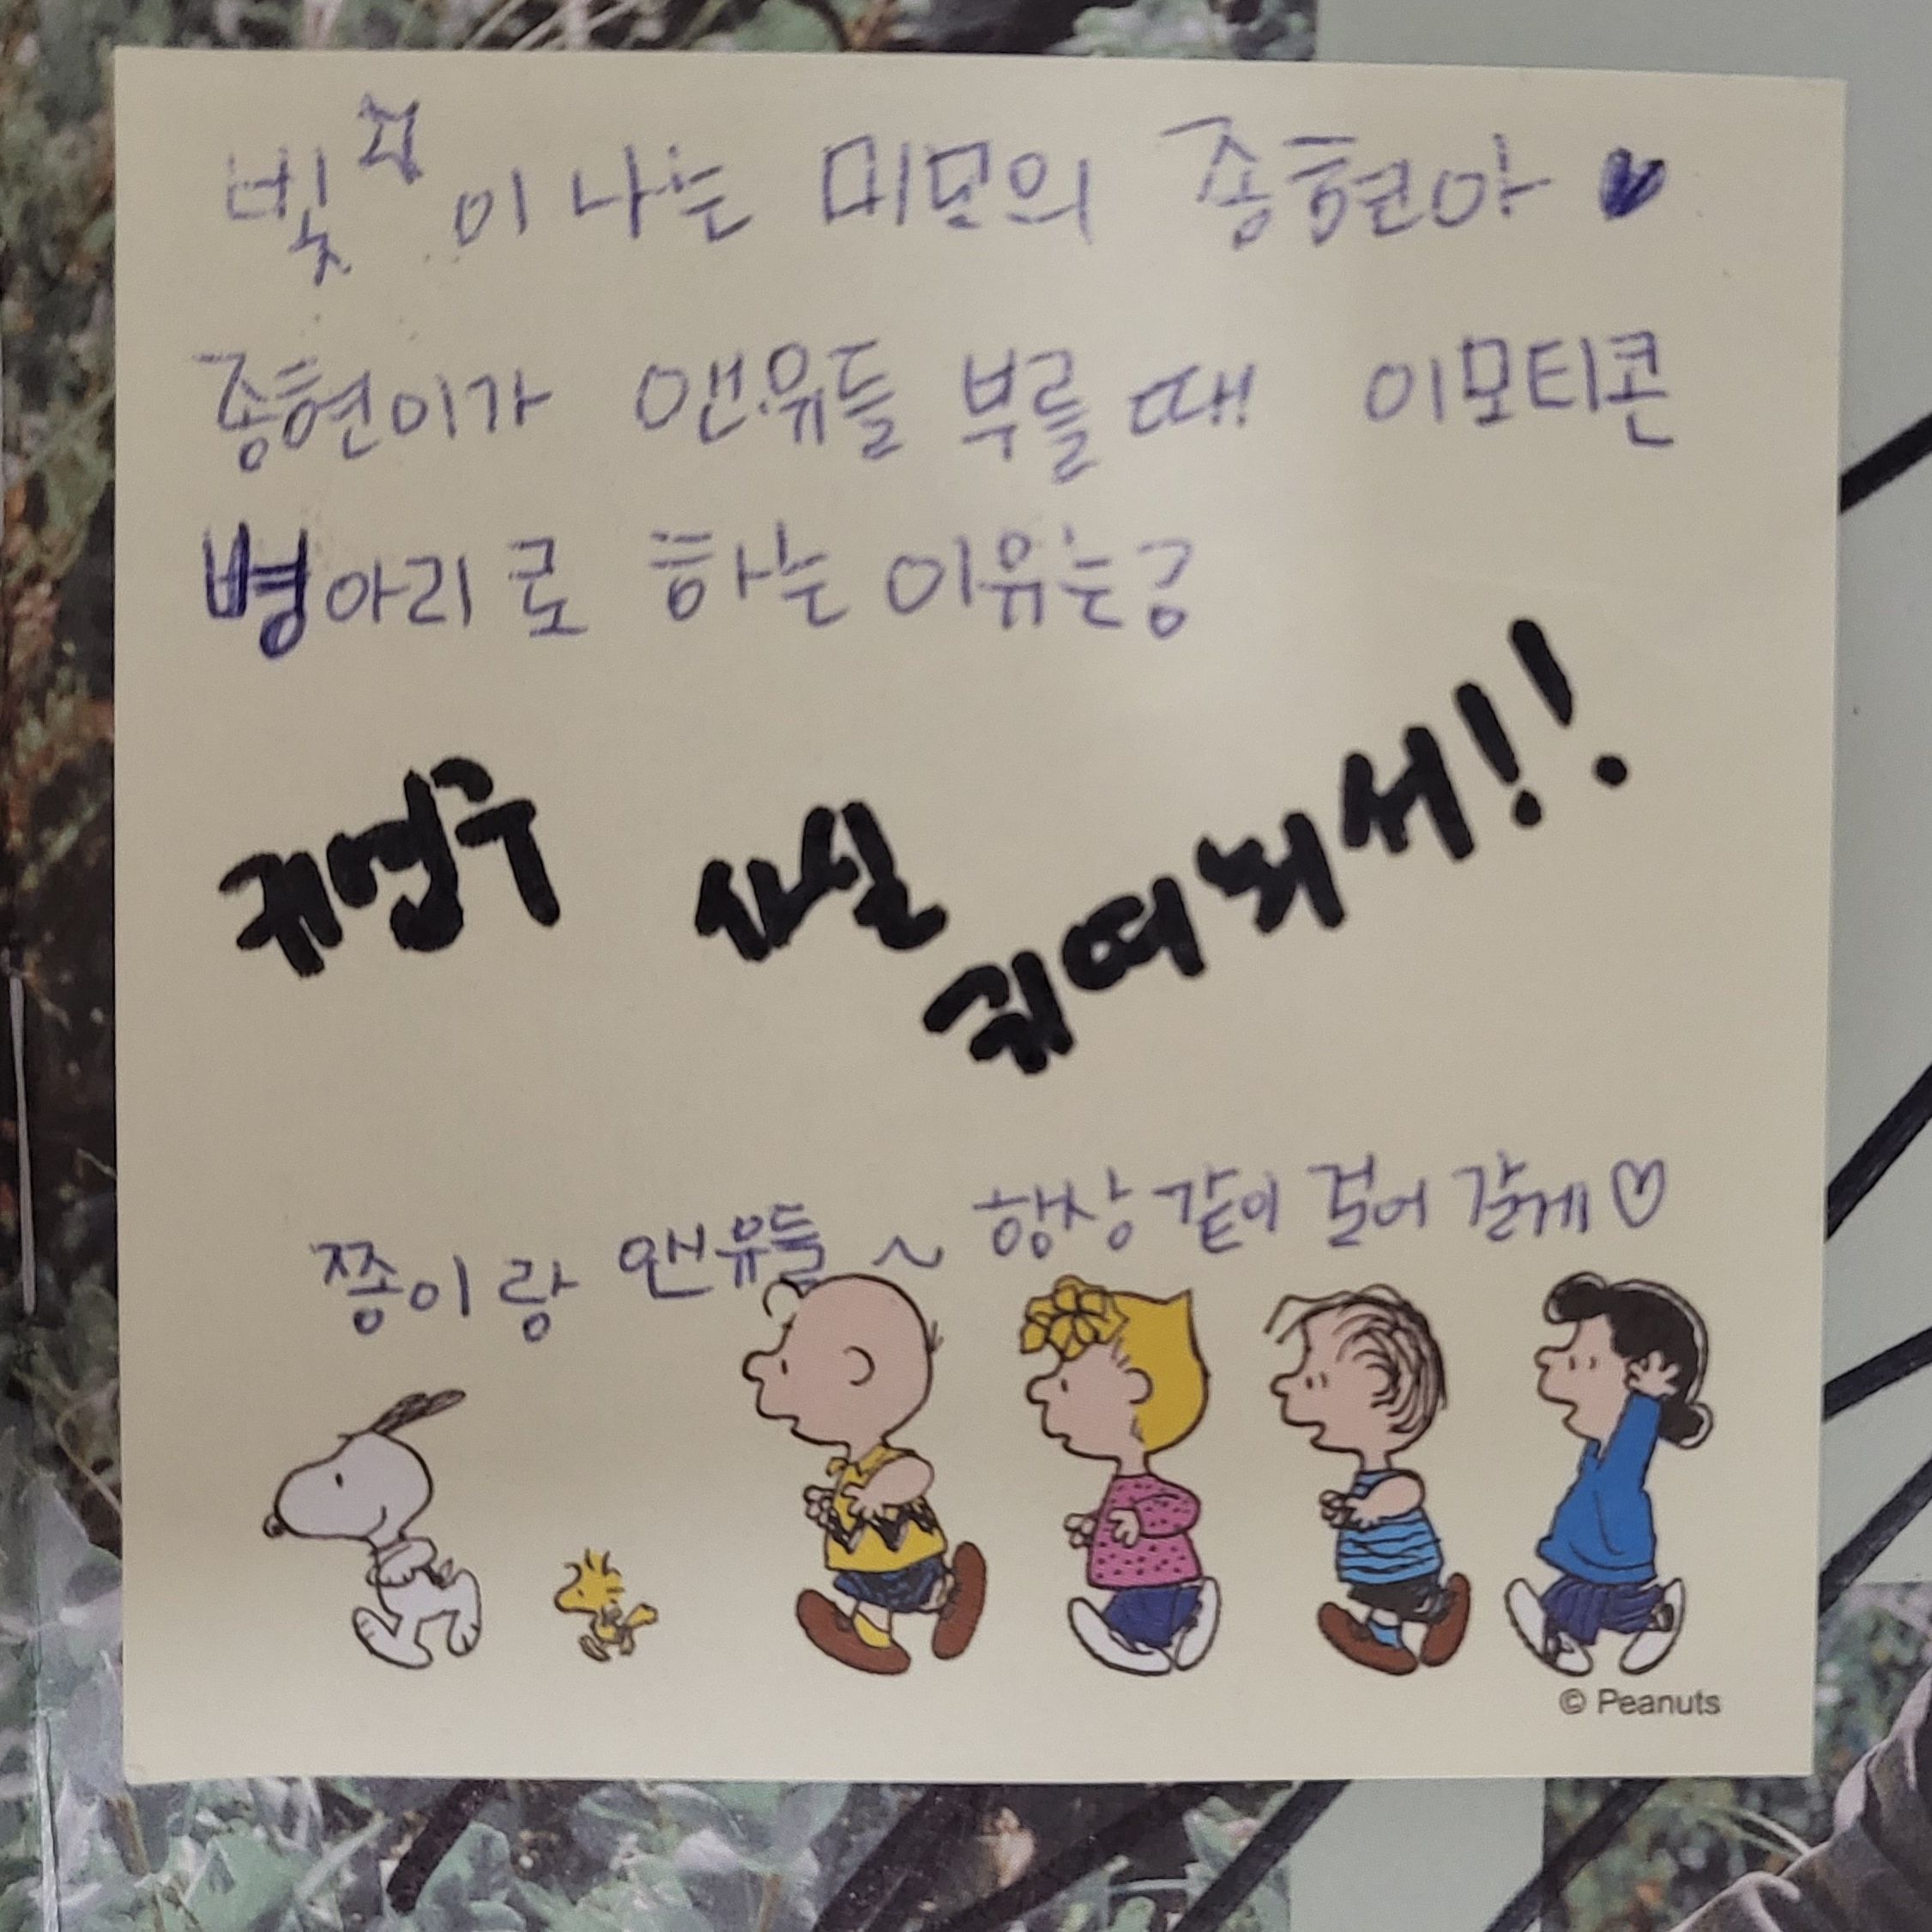 빛이 나는 미모의 종현아 ♥
종현이가 앤유들 부를 때 이모티콘
병아리로 하는 이유는?
귀엽구 사실
귀여워서!!
쫑이랑 앤유들 ~ 항상 같이 걸어 갈게♡
© Peanuts